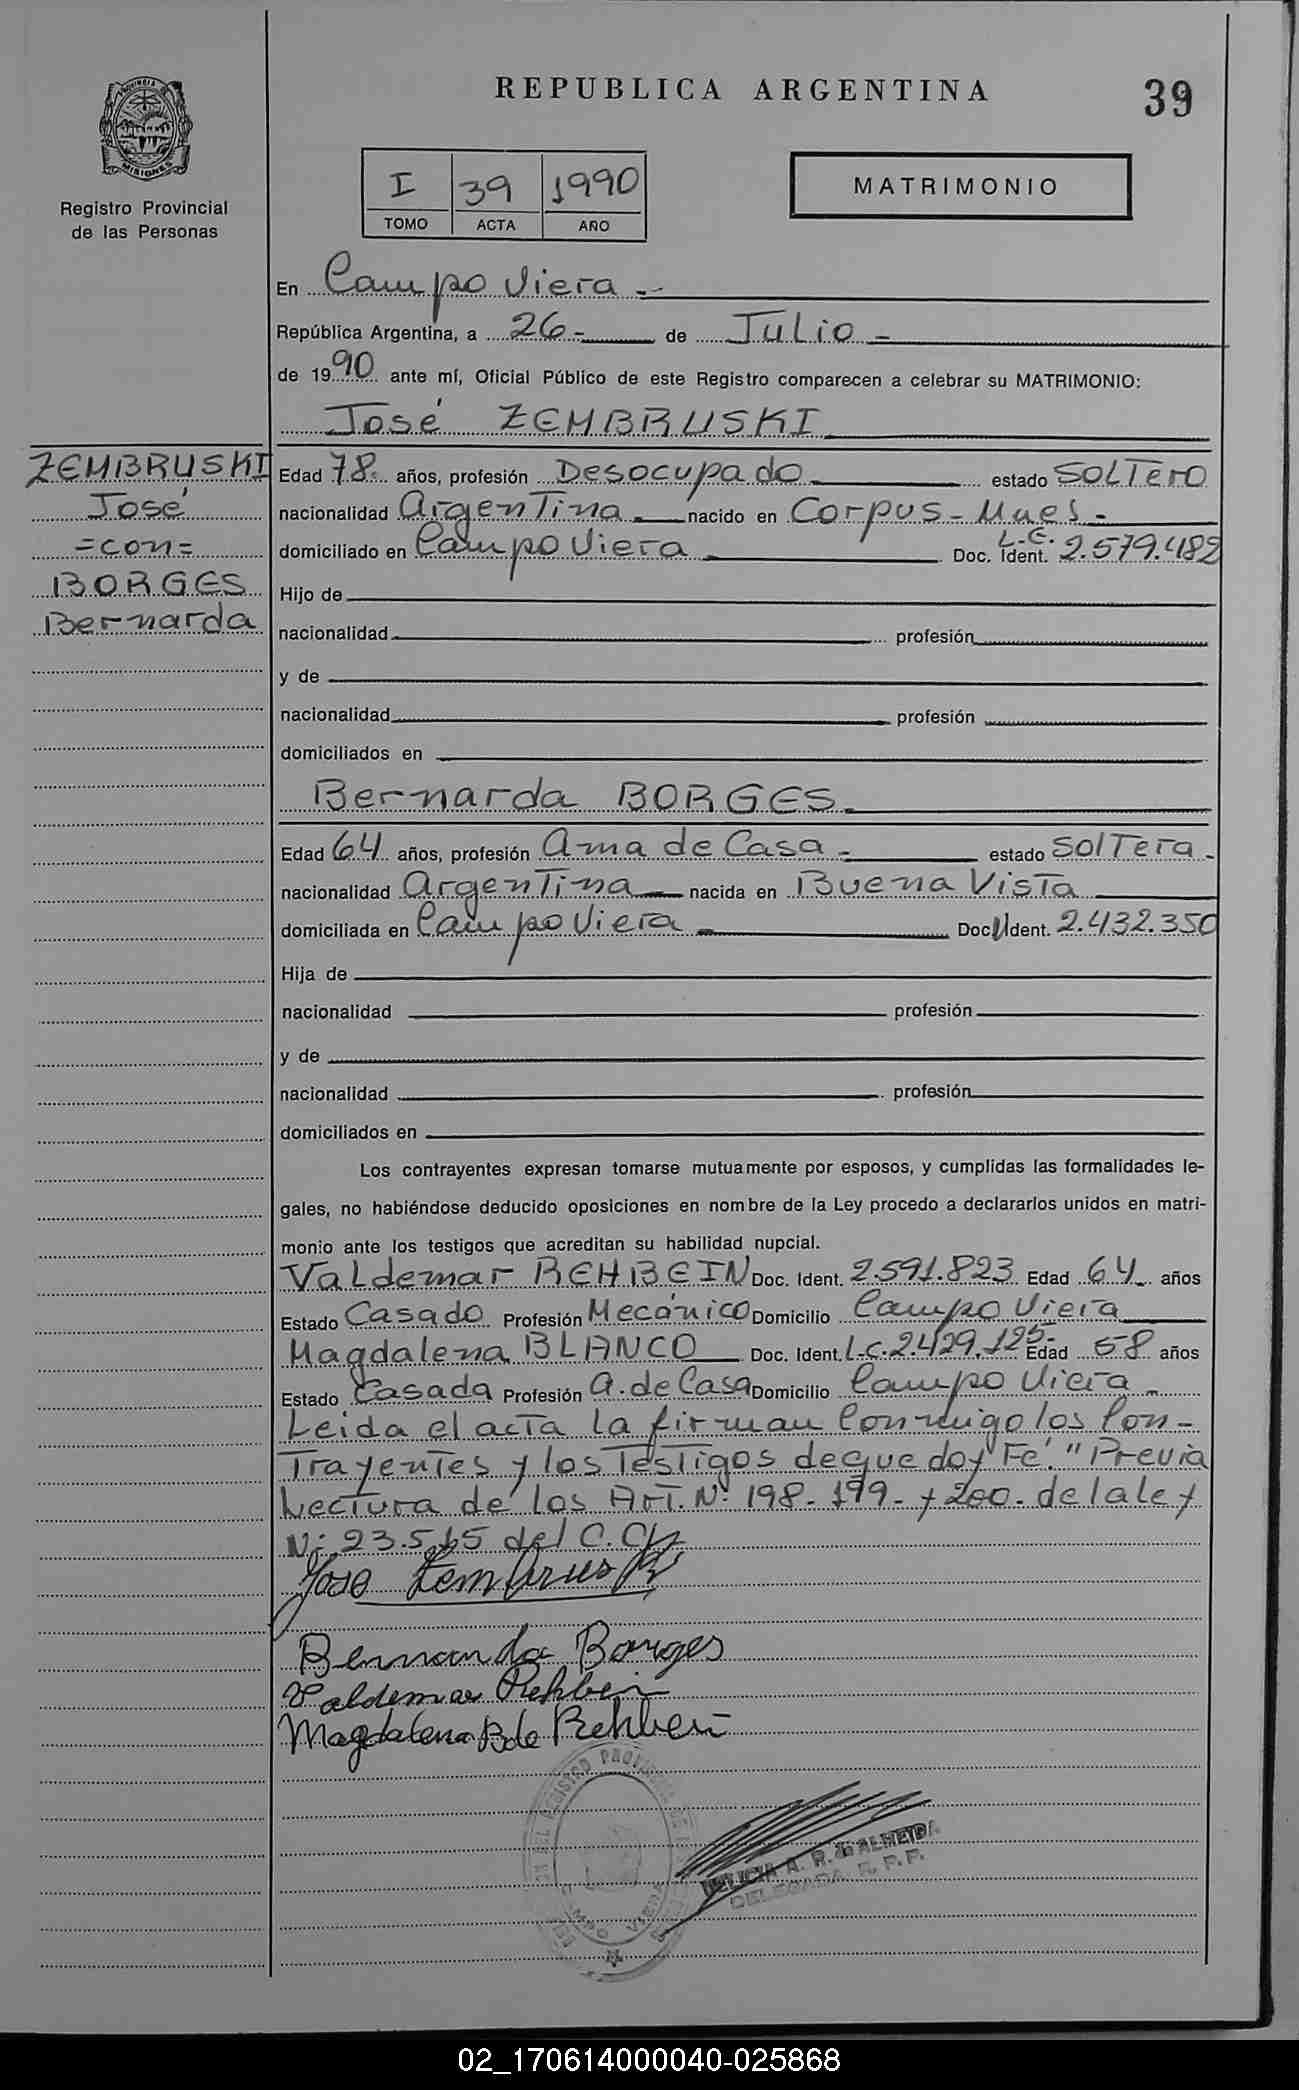 REPUBLICA ARGENTINA
39
PROVINCIA DE
MISIONES
Registro Provincial
de las Personas
I 39 1990
TOMO ACTA AÑO
MATRIMONIO
En Campo Viera.-
República Argentina, a 26- de Julio-
de 1990 ante mí, Oficial Público de este Registro comparecen a celebrar su MATRIMONIO:
José ZEMBRUSKI
ZEMBRUSKI
José
=con=
BORGES
Bernarda
Edad 78 años, profesión Desocupado estado SOLTERO
nacionalidad Argentina nacido en Corpus-Mnes-
domiciliado en Campo Viera Doc. Ident. L.E. 2.579.482
Hijo de
nacionalidad profesión
y de
nacionalidad profesión
domiciliados en
Bernarda BORGES.
Edad 64 años, profesión Ama de Casa- estado SolTera-
nacionalidad Argentina nacida en Buena Vista
domiciliada en Campo Viera- Doc. Ident. 2.432.350
Hija de
nacionalidad profesión
y de
nacionalidad profesión
domiciliados en
Los contrayentes expresan tomarse mutuamente por esposos, y cumplidas las formalidades le-
gales, no habiéndose deducido oposiciones en nombre de la Ley procedo a declararlos unidos en matri-
monio ante los testigos que acreditan su habilidad nupcial.
Valdemar REHBEIN Doc. Ident. 2.591.823 Edad 64 años
Estado Casado Profesión Mecánico Domicilio Campo Viera
Magdalena BLANCO Doc. Ident. L.C. 2.429.125- Edad 58 años
Estado Casada Profesión A. de Casa Domicilio Campo Viera-
Leida el acta la firman Conmigo los Con-
Trayentes y los Testigos de que doy Fé." Previa
Lectura de los Art. Nº 198-199- y 200. de la ley
Nº 23.515 del C.C.
Jose Zembruski
Bernarda Borges
Valdemar Rehbein
Magdalena B de Rehbein
DEL REGISTRO PROVINCIAL DE
CAMPO VIERA
DELICIA A. R. de ALMEIDA
DELEGADA R. P. P.
02_170614000040-025868